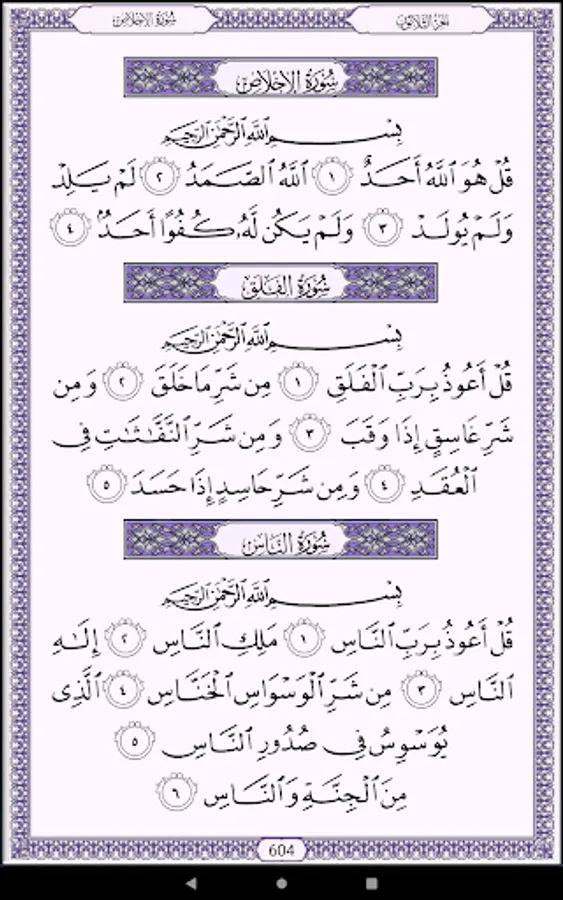 سُورَةُ الإِخْلَاصِ
الجزء الثلاثون
سُورَةُ الإِخْلَاصِ
بِسْمِ ٱللَّهِ ٱلرَّحْمَٰنِ ٱلرَّحِيمِ
قُلْ هُوَ ٱللَّهُ أَحَدٌ ١ ٱللَّهُ ٱلصَّمَدُ ٢ لَمْ يَلِدْ
وَلَمْ يُولَدْ ٣ وَلَمْ يَكُن لَّهُۥ كُفُوًا أَحَدٌۢ ٤
سُورَةُ الفَلَقِ
بِسْمِ ٱللَّهِ ٱلرَّحْمَٰنِ ٱلرَّحِيمِ
قُلْ أَعُوذُ بِرَبِّ ٱلْفَلَقِ ١ مِن شَرِّ مَا خَلَقَ ٢ وَمِن
شَرِّ غَاسِقٍ إِذَا وَقَبَ ٣ وَمِن شَرِّ ٱلنَّفَّٰثَٰتِ فِى
ٱلْعُقَدِ ٤ وَمِن شَرِّ حَاسِدٍ إِذَا حَسَدَ ٥
سُورَةُ النَّاسِ
بِسْمِ ٱللَّهِ ٱلرَّحْمَٰنِ ٱلرَّحِيمِ
قُلْ أَعُوذُ بِرَبِّ ٱلنَّاسِ ١ مَلِكِ ٱلنَّاسِ ٢ إِلَٰهِ
ٱلنَّاسِ ٣ مِن شَرِّ ٱلْوَسْوَاسِ ٱلْخَنَّاسِ ٤ ٱلَّذِى
يُوَسْوِسُ فِى صُدُورِ ٱلنَّاسِ ٥
مِنَ ٱلْجِنَّةِ وَٱلنَّاسِ ٦
604